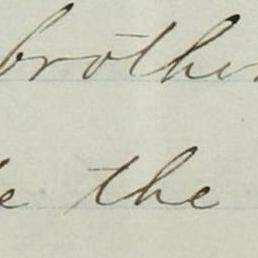 brother
the